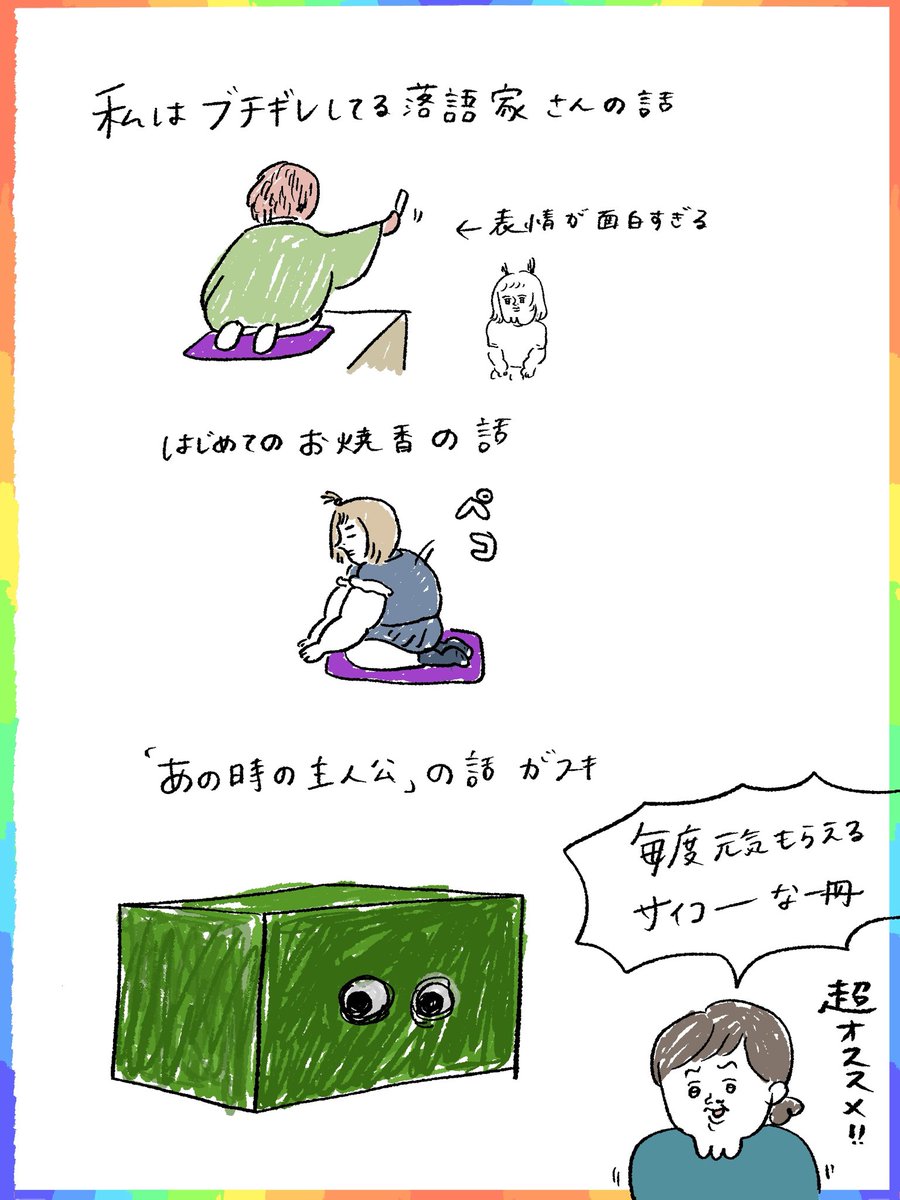 私はブチギレしてる落語家さんの話
←表情が面白すぎる
はじめてのお焼香の話
ペコ
「あの時の主人公」の話がスキ
毎度元気もらえる
サイコーな一冊
超オススメ!!